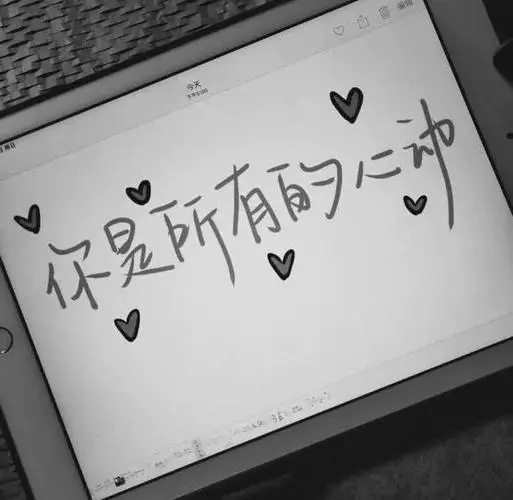 今天
下午5:00
编辑
你是所有的心动